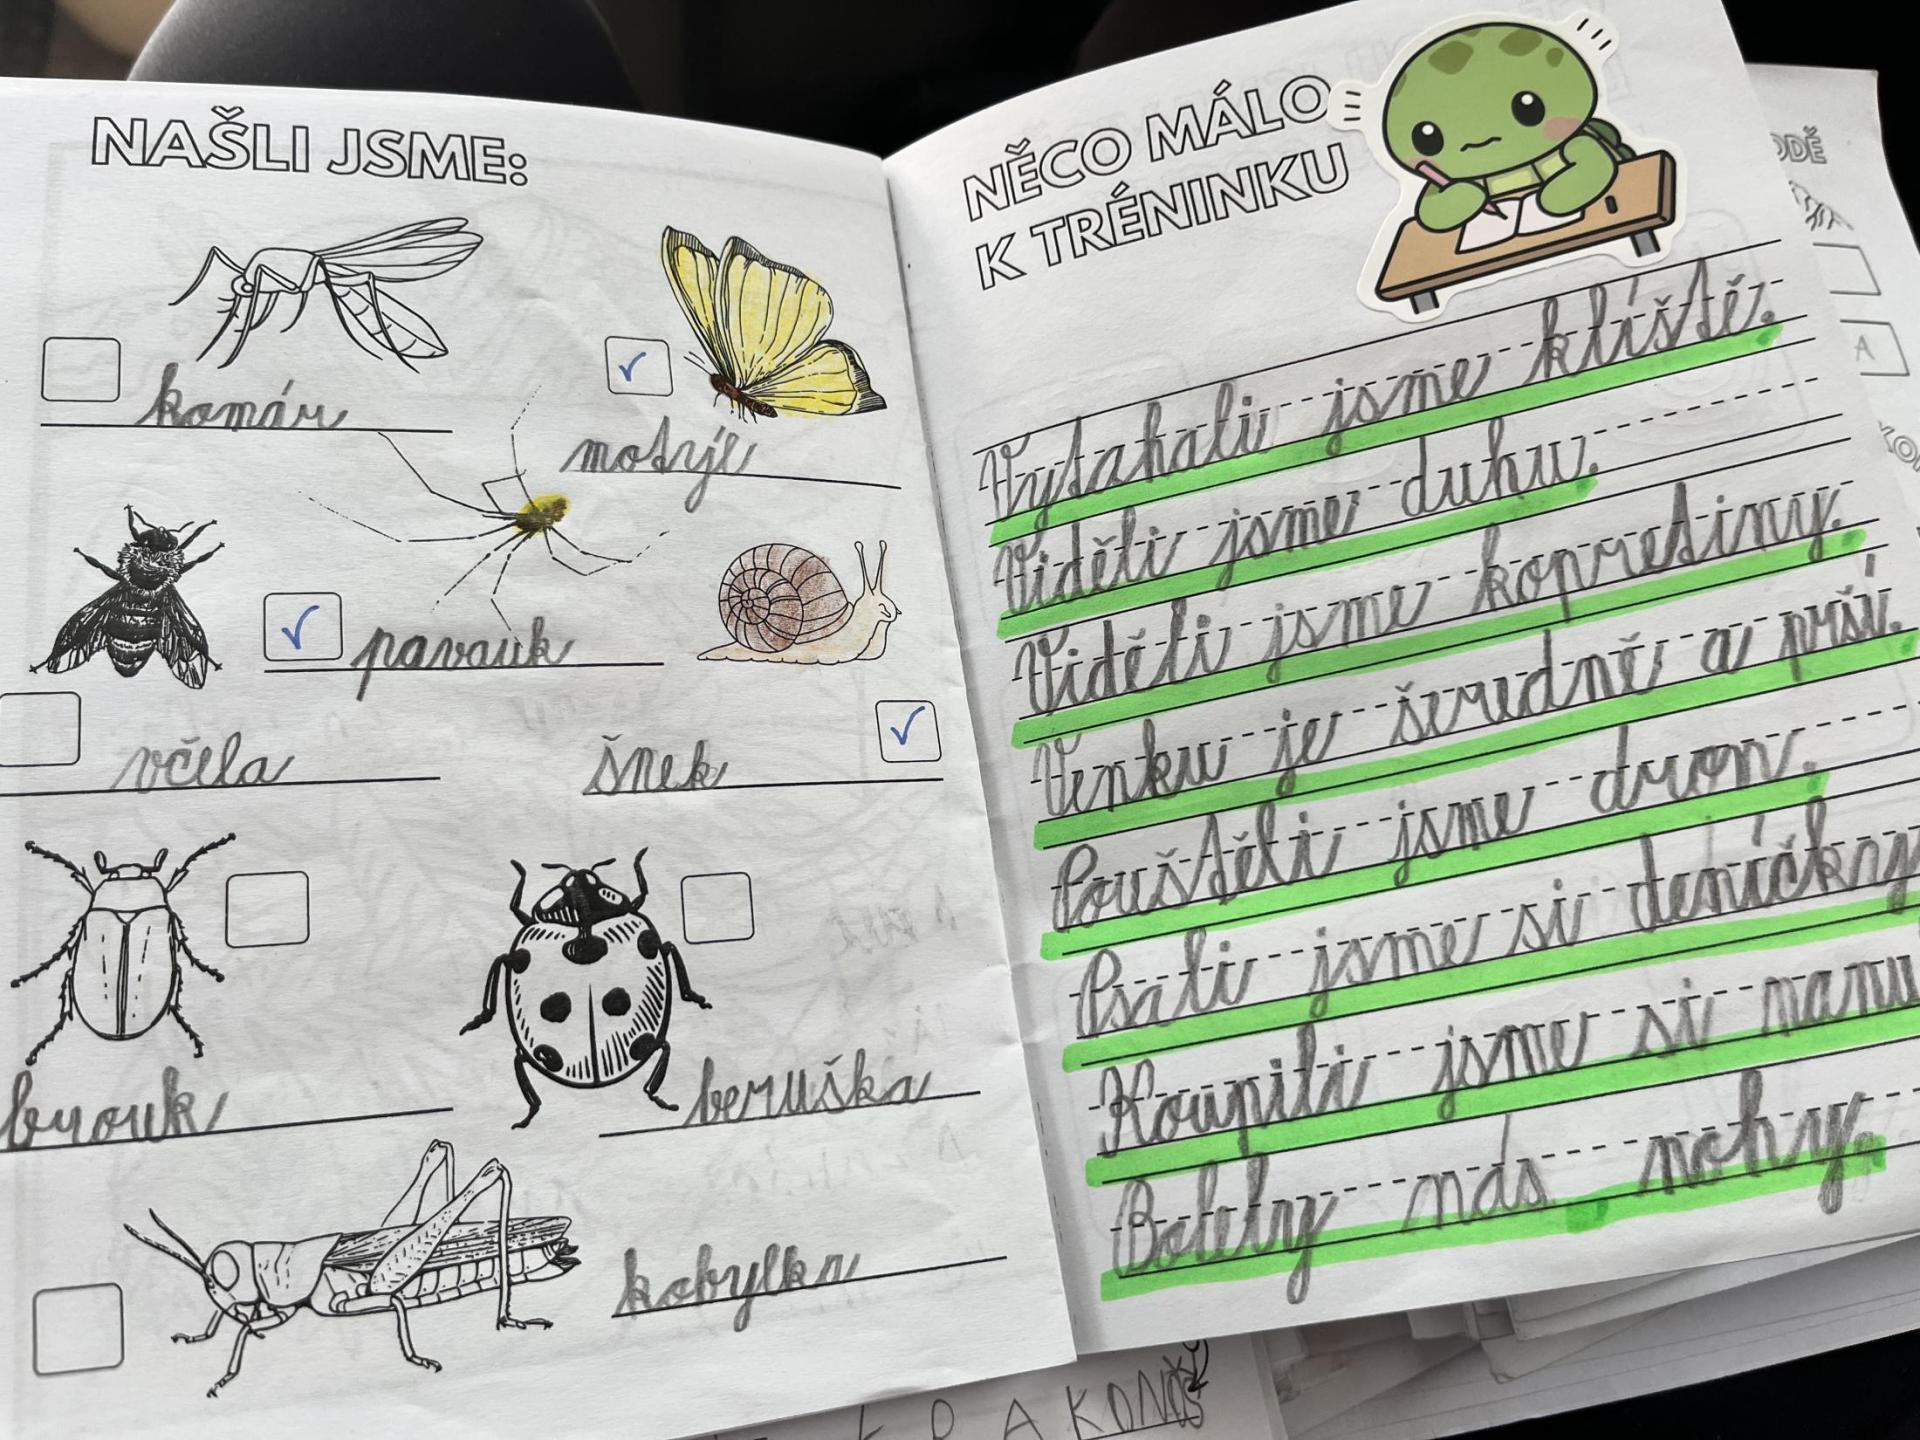 NAŠLI JSME:
komár
motýl
pavouk
včela
šnek
brouk
beruška
kobylka
NĚCO MÁLO
K TRÉNINKU
Vytahali jsme klíště.
Viděli jsme duhu.
Viděli jsme kopretiny.
Venku je šeredně a prší.
Pouštěli jsme dron.
Psali jsme si deníčky
Koupili jsme si nanu
Bolely nás nohy.
A